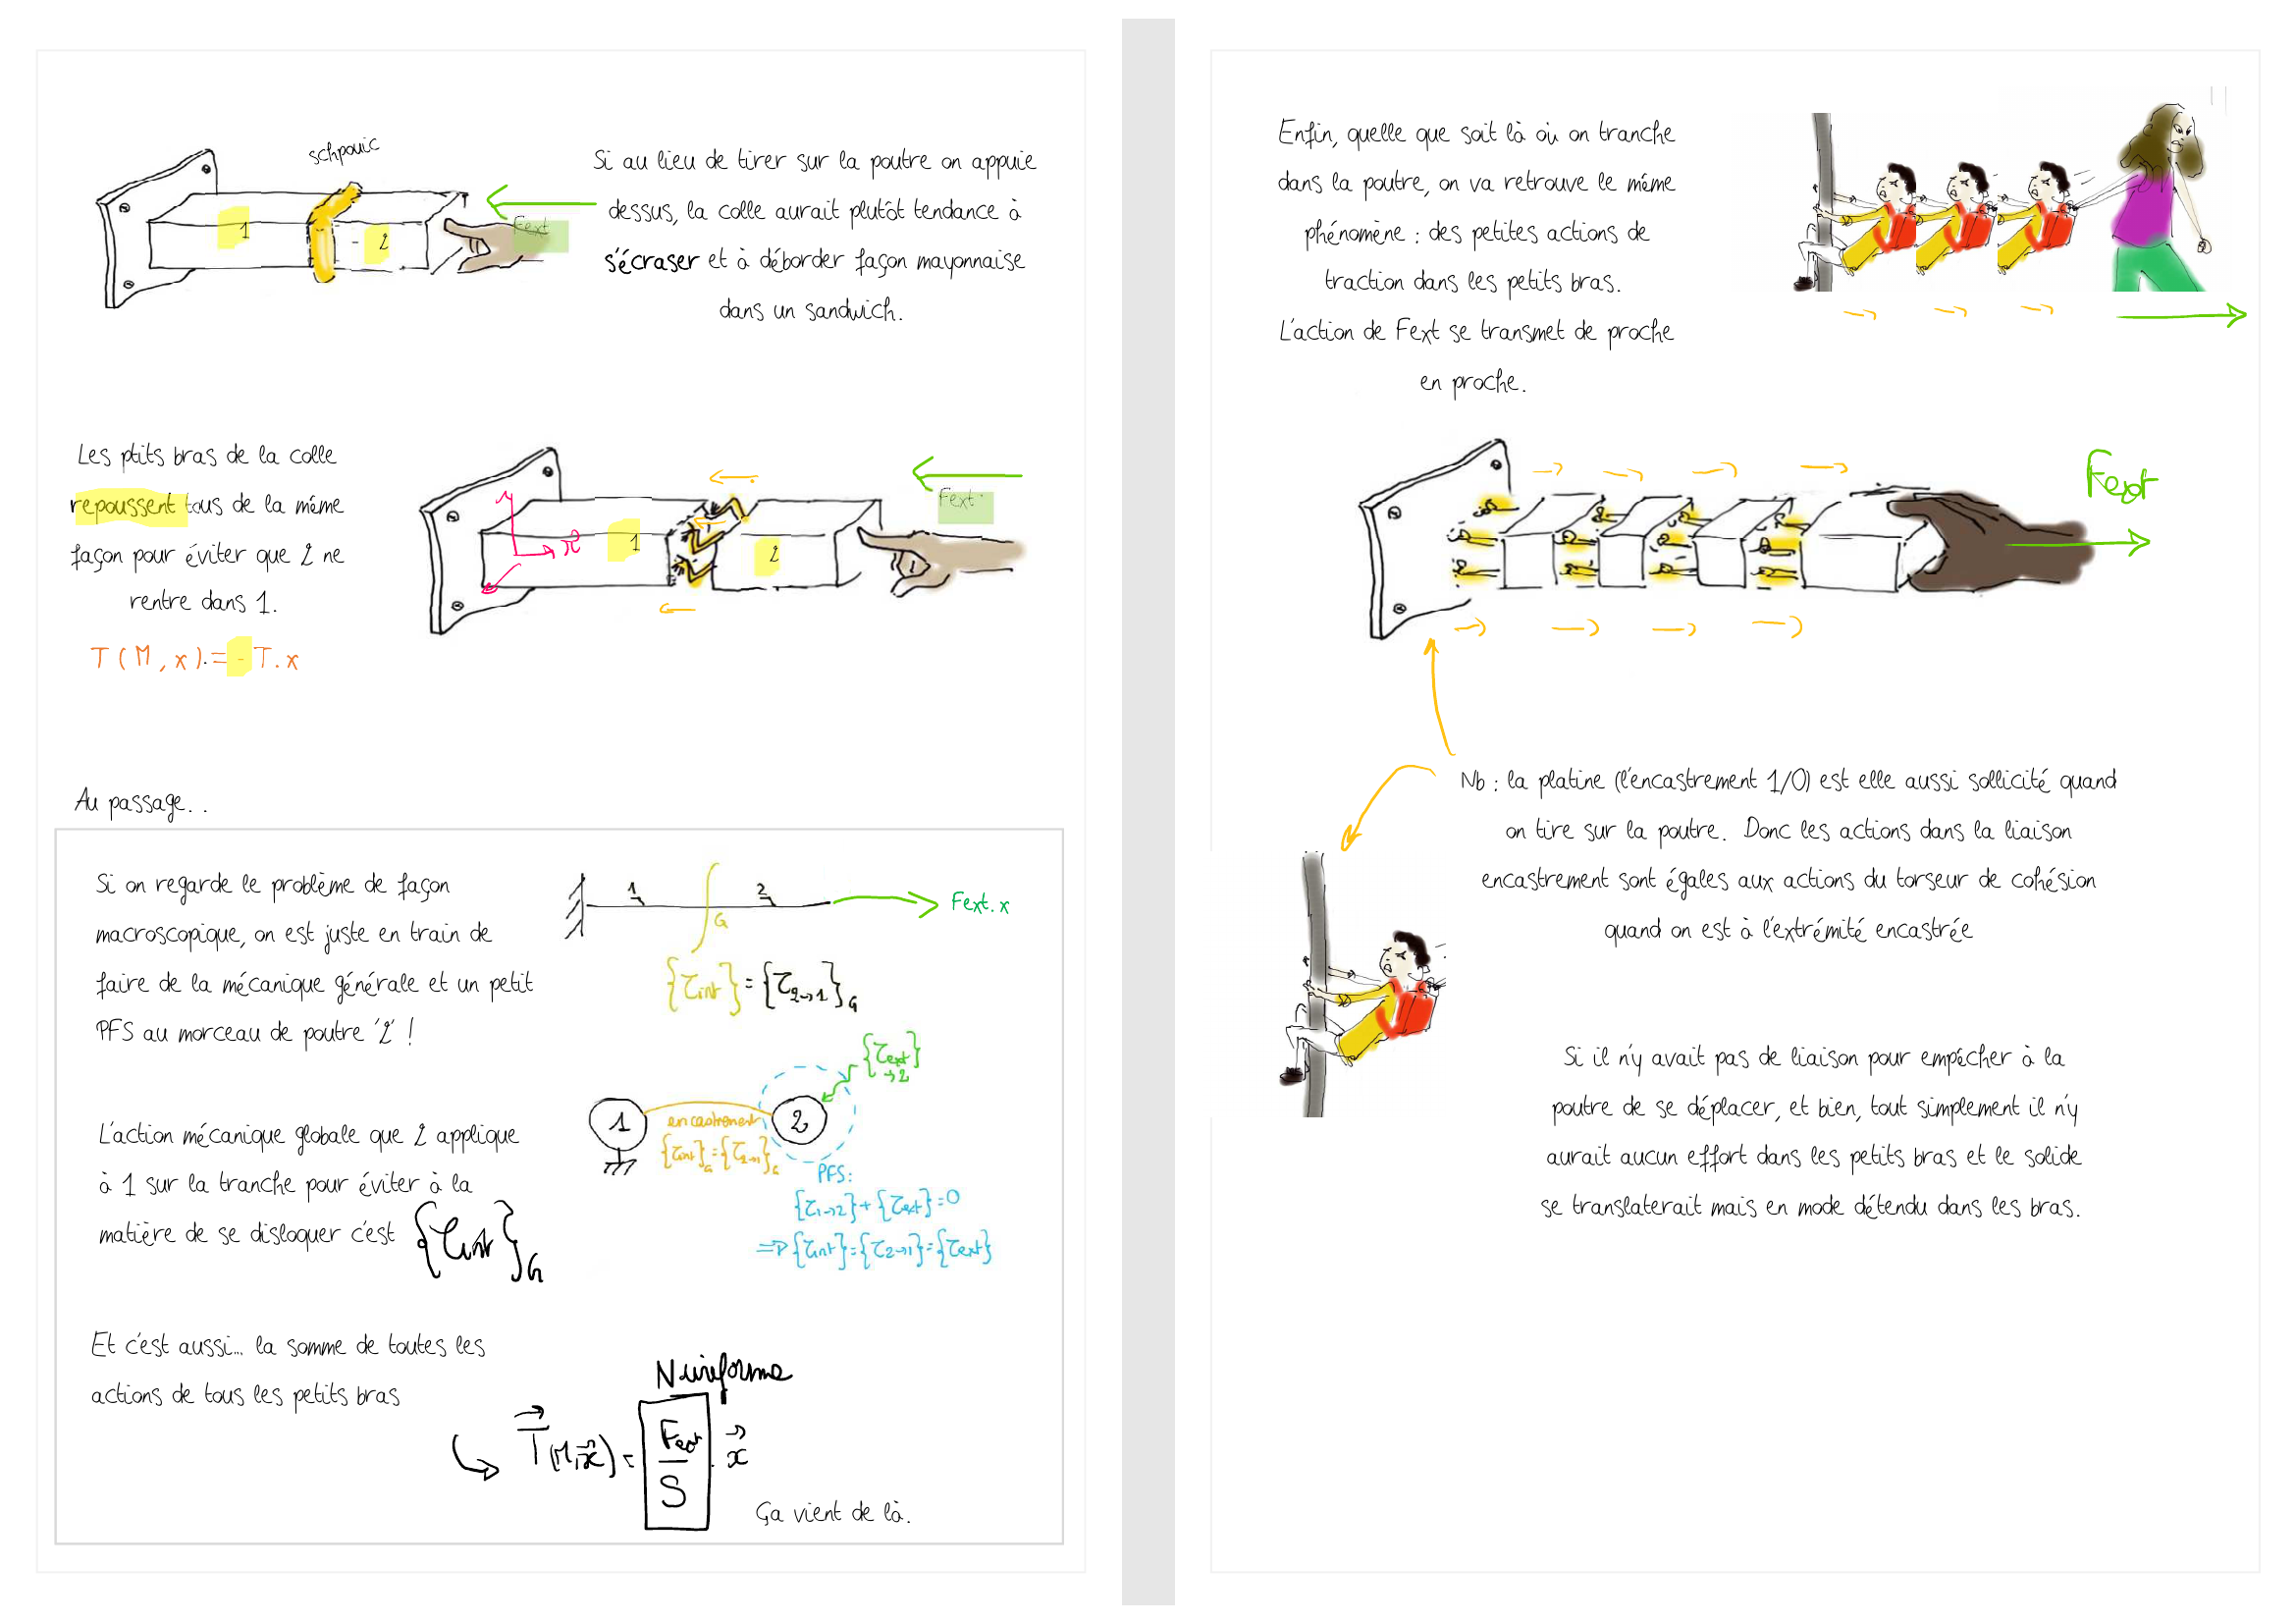 schpouic
Si au lieu de tirer sur la poutre on appuie
dessus, la colle aurait plutôt tendance à
s'écraser et à déborder façon mayonnaise
dans un sandwich.
1
2
Fext
Les ptits bras de la colle
repoussent tous de la même
façon pour éviter que 2 ne
rentre dans 1.
T(M,x).=-T.x
y
x
1
2
Fext
Au passage..
Si on regarde le problème de façon
macroscopique, on est juste en train de
faire de la mécanique générale et un petit
PFS au morceau de poutre '2' !
1
2
G
Fext.x
{τint}={τ2→1}G
L'action mécanique globale que 2 applique
à 1 sur la tranche pour éviter à la
matière de se disloquer c'est {τint}G
1
encastrement
{τint}G={τ2→1}G
2
{τext→2}
PFS:
{τ1→2}+{τext}=0
=>{τint}={τ2→1}={τext}
Et c'est aussi... la somme de toutes les
actions de tous les petits bras
N uniforme
T(M,x)=Fext/S.x
Ça vient de là.
Enfin, quelle que soit là où on tranche
dans la poutre, on va retrouve le même
phénomène : des petites actions de
traction dans les petits bras.
L'action de Fext se transmet de proche
en proche.
Fext
Nb : la platine (l'encastrement 1/0) est elle aussi sollicité quand
on tire sur la poutre. Donc les actions dans la liaison
encastrement sont égales aux actions du torseur de cohésion
quand on est à l'extrémité encastrée
Si il n'y avait pas de liaison pour empêcher à la
poutre de se déplacer, et bien, tout simplement il n'y
aurait aucun effort dans les petits bras et le solide
se translaterait mais en mode détendu dans les bras.